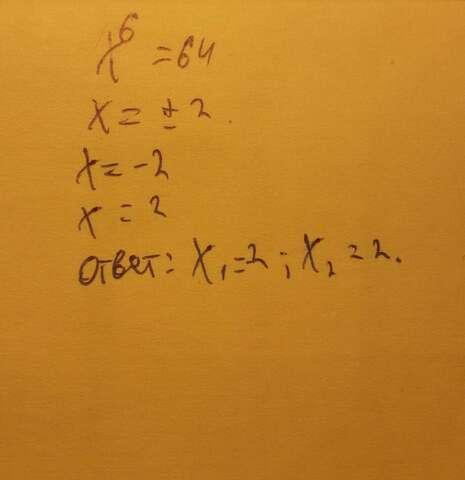 x⁶ = 64
x = ± 2.
x = -2
x = 2
Ответ: x₁=-2; x₂=2.